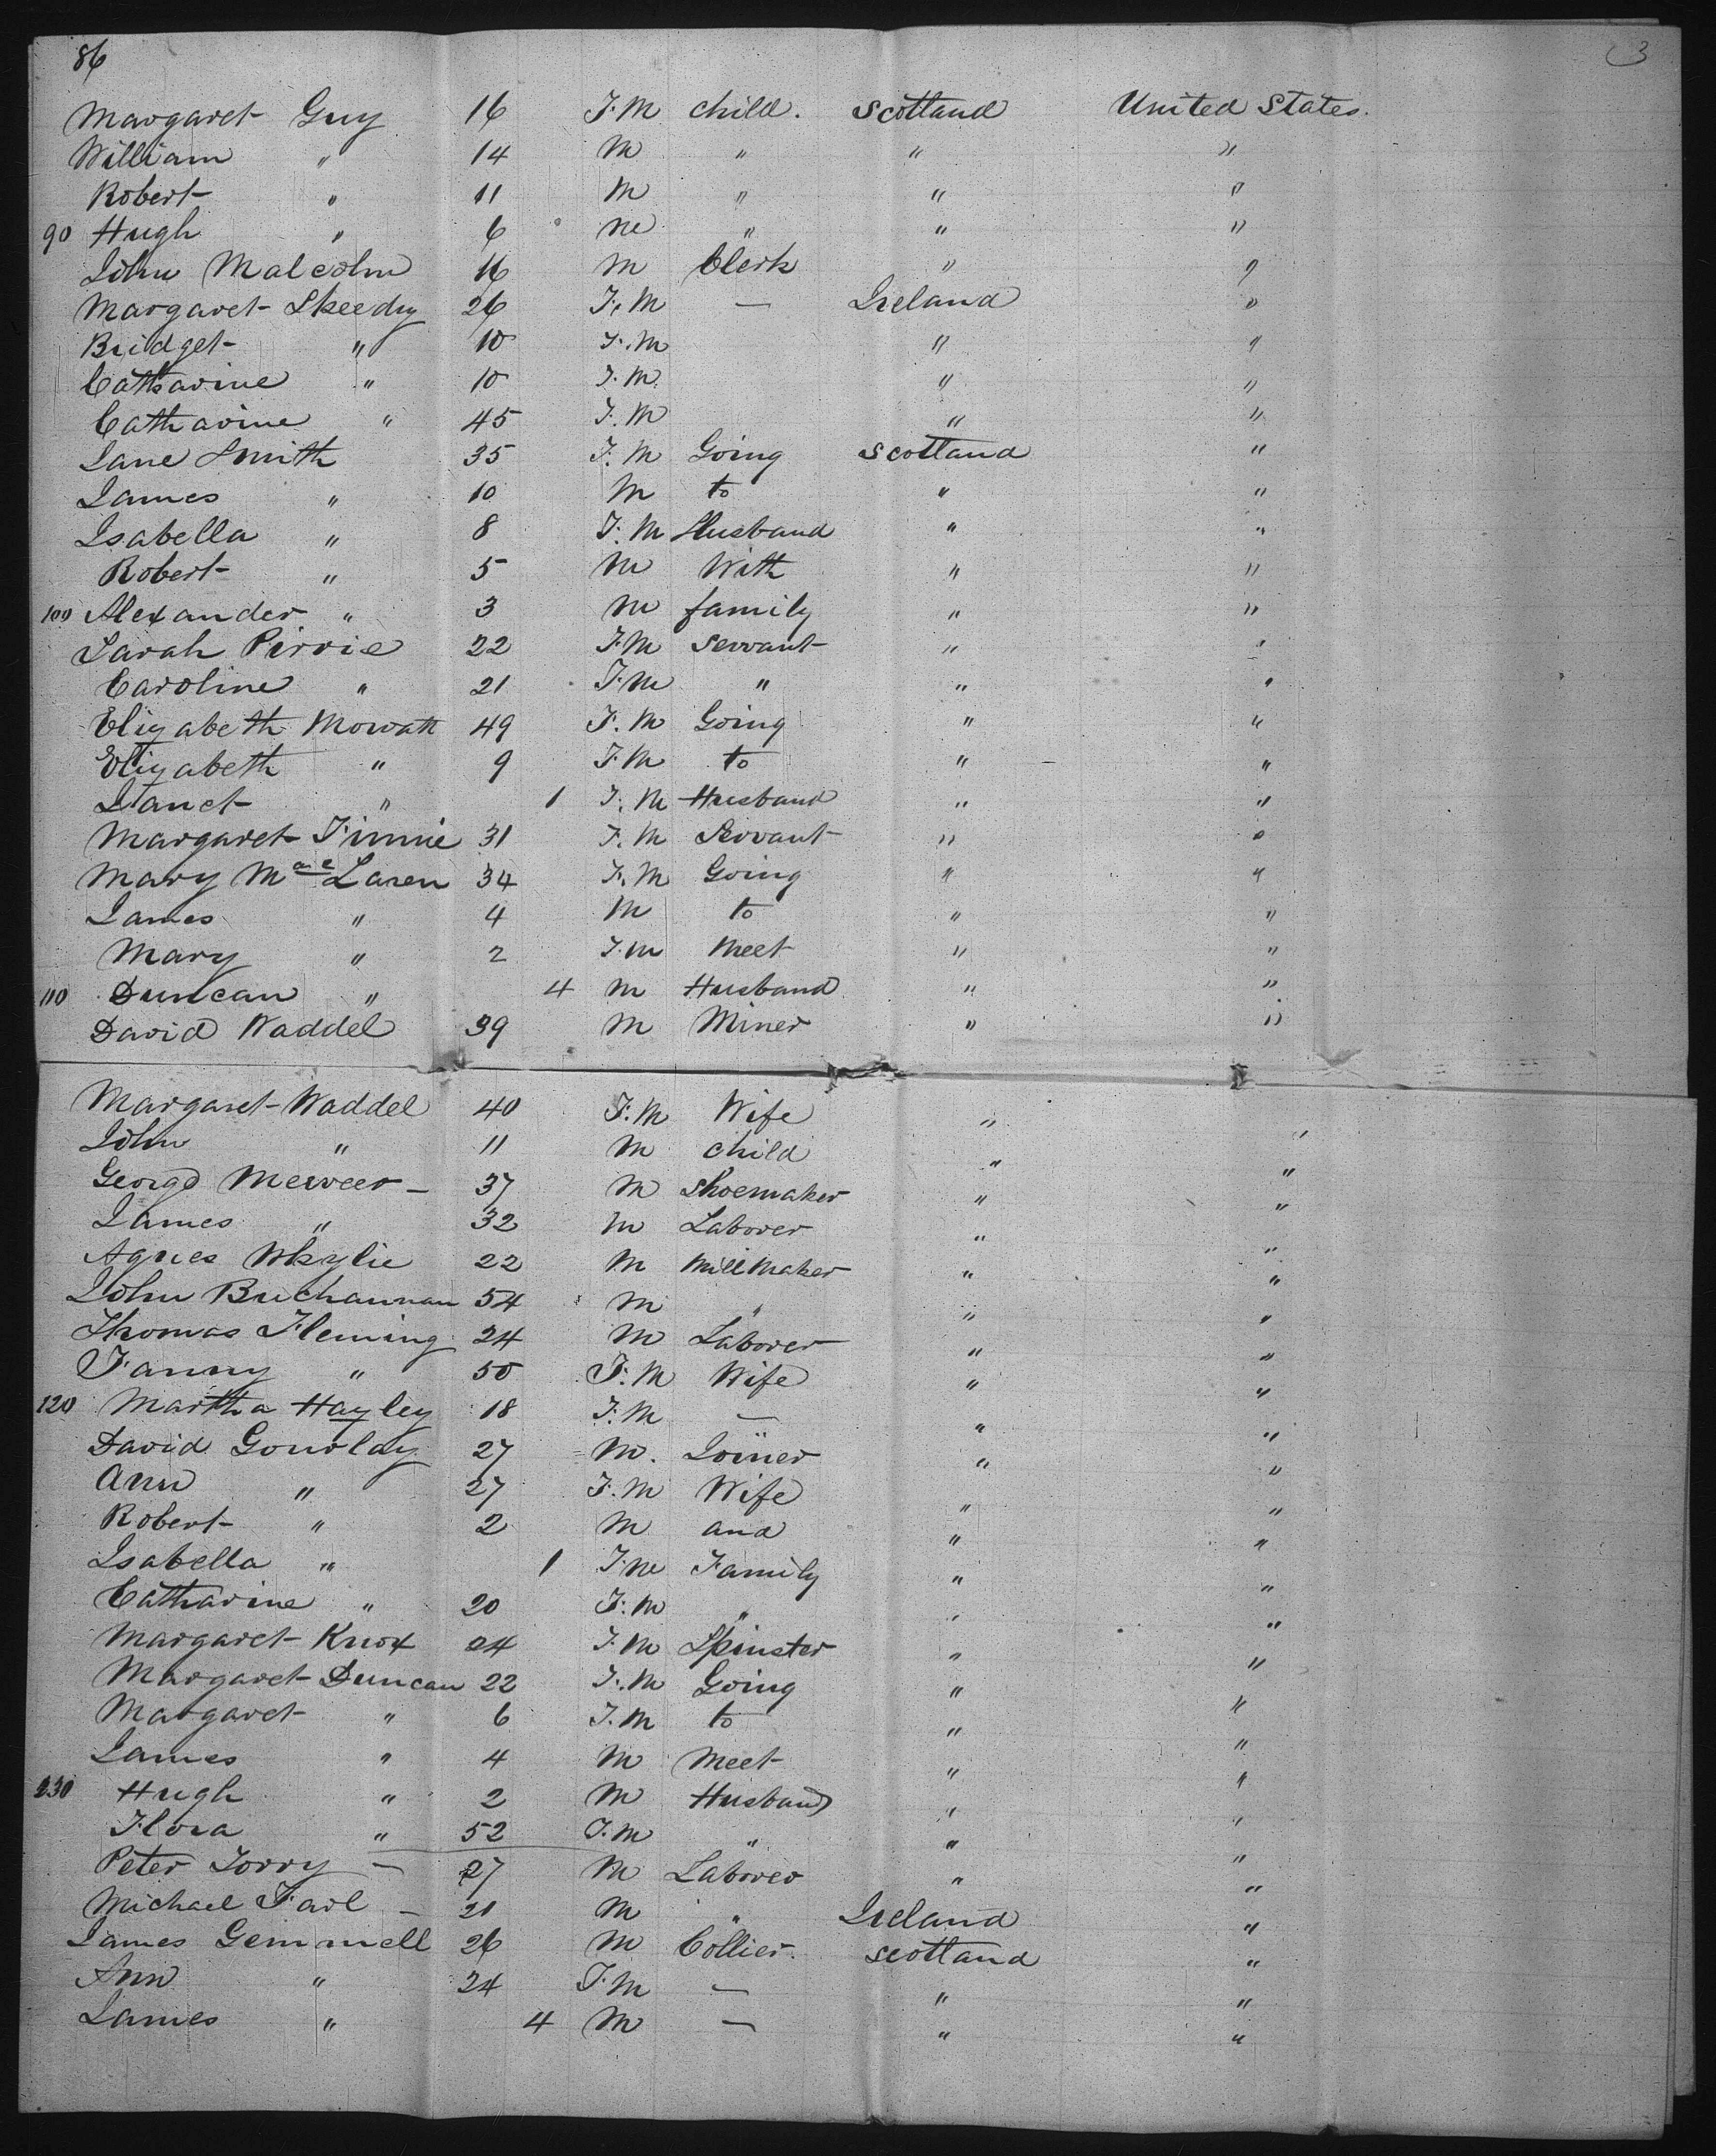 86 3
Margaret Guy 16 F.M child. Scotland United States.
William " 14 M " " "
Robert " 11 M " " "
90 Hugh " 6 M " " "
John Malcolm 16 M Clerk " "
Margaret Skeedy 26 F.M — Ireland "
Bridget " 10 F.M " "
Catharine " 10 F.M. " "
Catharine " 45 F.M " "
Jane Smith 35 F.M Going Scotland "
James " 10 M to " "
Isabella " 8 F.M Husband " "
Robert " 5 M With " "
100 Alexander " 3 M family " "
Sarah Pirrie 22 F.M Servant " "
Caroline " 21 F.M " " "
Elizabeth Mowatt 49 F.M Going " "
Elizabeth " 9 F.M to " "
Janet " 1 F.M Husband " "
Margaret Finnie 31 F.M Servant " "
Mary Mac Laren 34 F.M Going " "
James " 4 M to " "
Mary " 2 F.M Meet " "
110 Duncan " 4 M Husband " "
David Waddel 39 M Miner " "
Margaret Waddel 40 F.M Wife " "
John " 11 M child " "
George — 37 M Shoemaker " "
James " 32 M Laborer " "
Agnes Whylie 22 M Mill Maker " "
John Buchannan 54 M " " "
Thomas Fleming 24 M Laborer " "
Fanny " 50 F.M Wife " "
120 Martha Hayley 18 F.M — " "
David Gourlay 27 M. Joiner " "
Ann " 27 F.M Wife " "
Robert " 2 M and " "
Isabella " 1 F.M Family " "
Catharine " 20 F.M " " "
Margaret Knox 24 F.M Spinster " "
Margaret Duncan 22 F.M Going " "
Margaret " 6 F.M to " "
James " 4 M Meet " "
130 Hugh " 2 M Husband " "
Flora " 52 F.M " " "
Peter Torry — 27 M Laborer " "
Michael Farl — 21 M " Ireland "
James Gemmell 26 M Collier. Scotland "
Ann " 24 F.M — " "
James " 4 M — " "